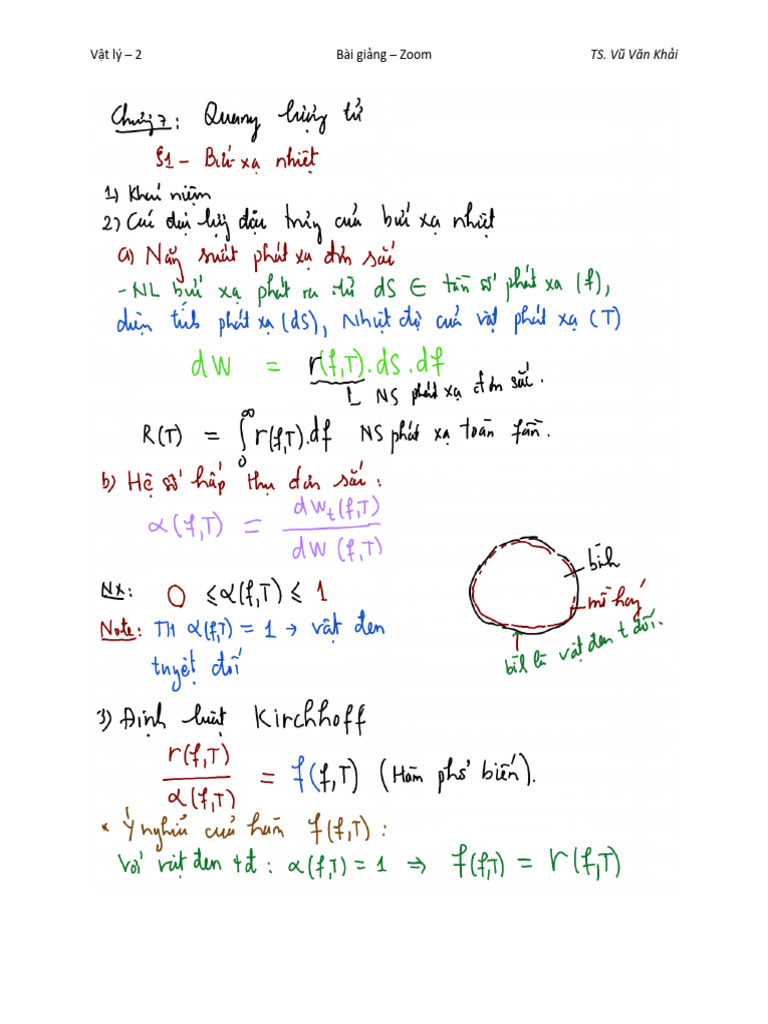 Vật lý – 2 Bài giảng – Zoom TS. Vũ Văn Khải
Chương 7: Quang lượng tử
§1 - Bức xạ nhiệt
1) Khái niệm
2) Các đại lượng đặc trưng của bức xạ nhiệt
a) Năng suất phát xạ đơn sắc
- NL bức xạ phát ra từ dS ∈ tần số phát xạ (f),
diện tích phát xạ (dS), Nhiệt độ của vật phát xạ (T)
dW = r(f,T).dS.df
NS phát xạ đơn sắc.
R(T) = ∫₀^∞ r(f,T).df NS phát xạ toàn phần.
b) Hệ số hấp thụ đơn sắc:
α(f,T) = dWt(f,T) / dW(f,T)
Nx: 0 ≤ α(f,T) ≤ 1
bình
mồ hóng
bình là vật đen t đối.
Note: TH α(f,T) = 1 → vật đen
tuyệt đối
3) Định luật Kirchhoff
r(f,T) / α(f,T) = f(f,T) (Hàm phổ biến).
* Ý nghĩa của hàm f(f,T):
Với vật đen tđ: α(f,T) = 1 ⇒ f(f,T) = r(f,T)